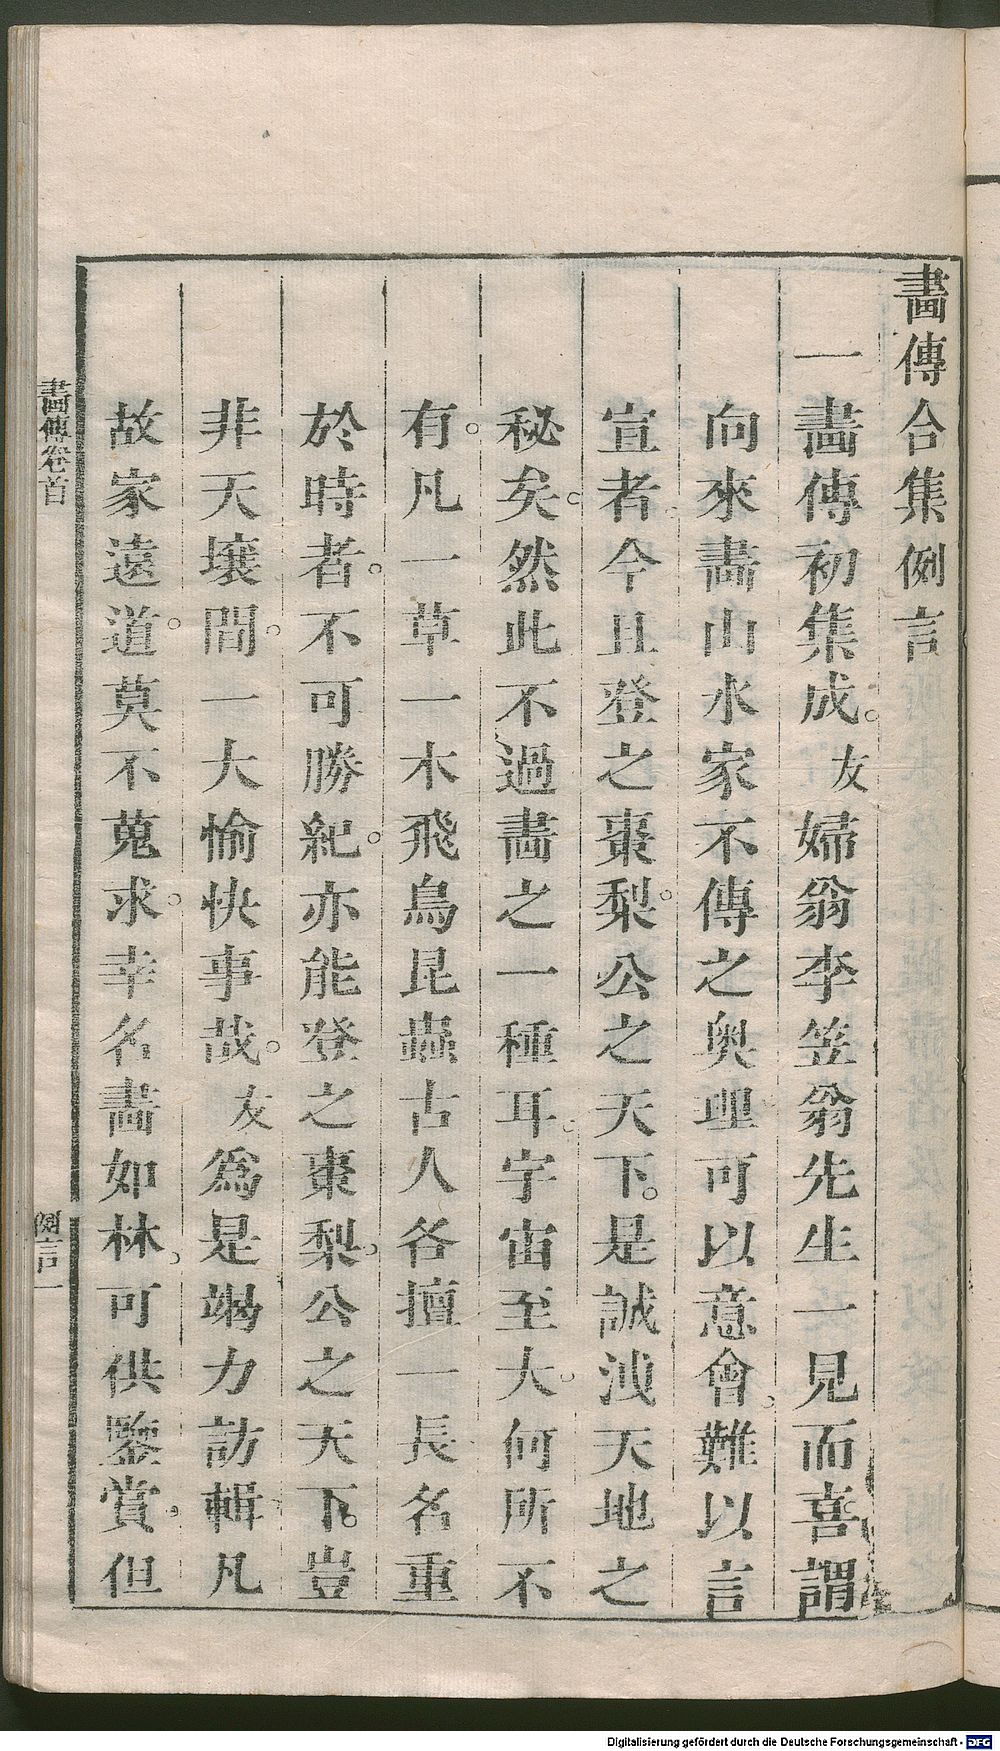 畫傳合集例言
一畫傳初集成。友婦翁李笠翁先生一見而喜。謂
向來畵山水家不傳之奥理可以意會、難以言
宣者。今且登之棗梨。公之天下。是誠洩天地之
秘矣。然此不過畵之一種耳。宇宙至大。何所不
有。凡一草一木飛鳥昆蟲古人各擅一長名重
於時者。不可勝紀。亦能登之棗梨、公之天下。豈
非天壤間。一大愉快事哉。友爲是竭力訪輯凡
故家遠道。莫不蒐求。幸名畵如林、可供鑒賞。但
畫傳卷首
例言一
Digitalisierung gefördert durch die Deutsche Forschungsgemeinschaft - DFG